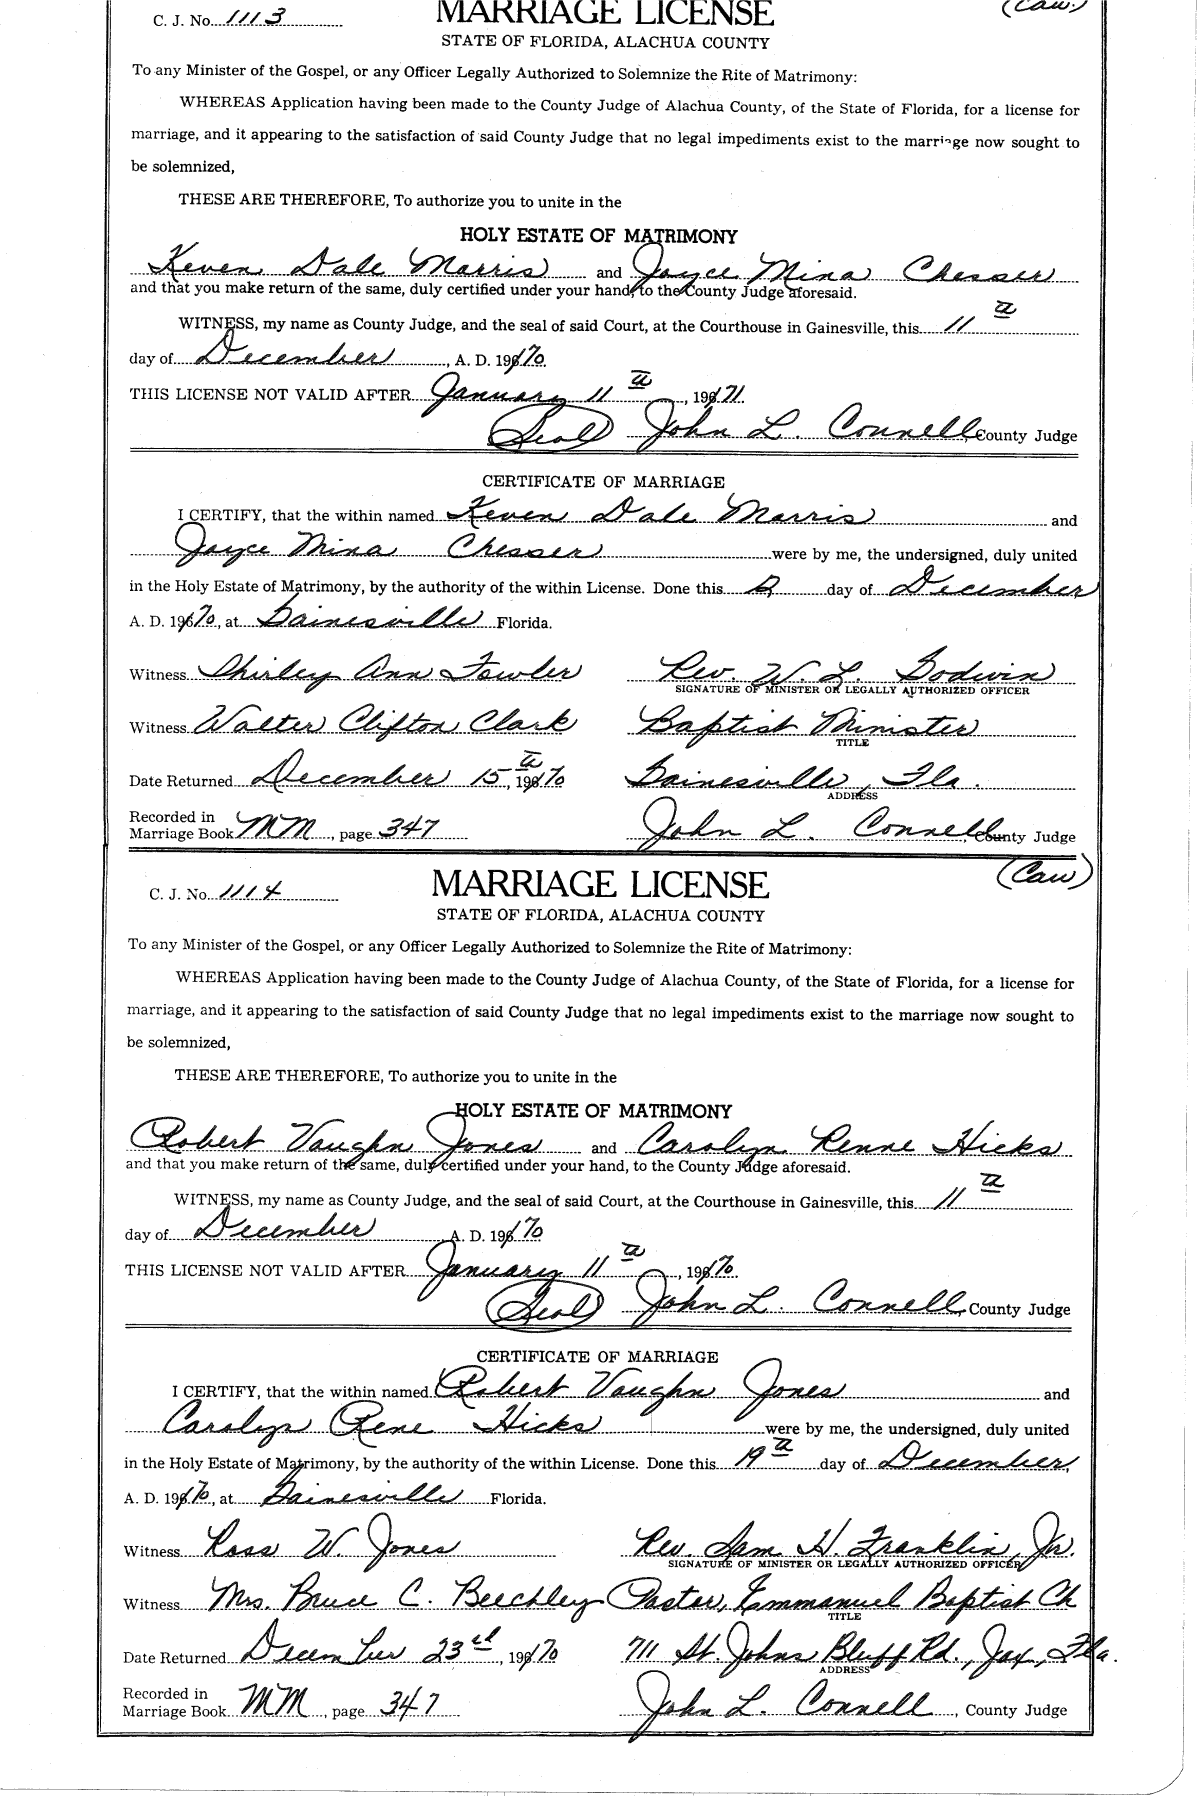 C. J. No. 1113 MARRIAGE LICENSE (Caw.)
STATE OF FLORIDA, ALACHUA COUNTY
To any Minister of the Gospel, or any Officer Legally Authorized to Solemnize the Rite of Matrimony:
WHEREAS Application having been made to the County Judge of Alachua County, of the State of Florida, for a license for
marriage, and it appearing to the satisfaction of said County Judge that no legal impediments exist to the marriage now sought to
be solemnized,
THESE ARE THEREFORE, To authorize you to unite in the
HOLY ESTATE OF MATRIMONY
Keven Dale Marris and Joyce Mina Chesser
and that you make return of the same, duly certified under your hand, to the County Judge aforesaid.
WITNESS, my name as County Judge, and the seal of said Court, at the Courthouse in Gainesville, this 11th
day of December, A. D. 1970
THIS LICENSE NOT VALID AFTER January 11th, 1971.
(Seal) John L. Connell County Judge
CERTIFICATE OF MARRIAGE
I CERTIFY, that the within named Keven Dale Marris and
Joyce Mina Chesser were by me, the undersigned, duly united
in the Holy Estate of Matrimony, by the authority of the within License. Done this day of December
A. D. 1970, at Gainesville Florida.
Witness Shirley Ann Fowler Rev. W. L. Godwin
SIGNATURE OF MINISTER OR LEGALLY AUTHORIZED OFFICER
Witness Walter Clifton Clark Baptist Minister
TITLE
Date Returned December 15th, 1970 Gainesville, Fla.
ADDRESS
Recorded in
Marriage Book MM, page 347 John L. Connell, County Judge
C. J. No. 1114 MARRIAGE LICENSE (Caw)
STATE OF FLORIDA, ALACHUA COUNTY
To any Minister of the Gospel, or any Officer Legally Authorized to Solemnize the Rite of Matrimony:
WHEREAS Application having been made to the County Judge of Alachua County, of the State of Florida, for a license for
marriage, and it appearing to the satisfaction of said County Judge that no legal impediments exist to the marriage now sought to
be solemnized,
THESE ARE THEREFORE, To authorize you to unite in the
HOLY ESTATE OF MATRIMONY
Robert Vaughn Jones and Carolyn Renne Hicks
and that you make return of the same, duly certified under your hand, to the County Judge aforesaid.
WITNESS, my name as County Judge, and the seal of said Court, at the Courthouse in Gainesville, this 11th
day of December A. D. 1970
THIS LICENSE NOT VALID AFTER January 11th, 1970.
(Seal) John L. Connell, County Judge
CERTIFICATE OF MARRIAGE
I CERTIFY, that the within named Robert Vaughn Jones and
Carolyn Rene Hicks were by me, the undersigned, duly united
in the Holy Estate of Matrimony, by the authority of the within License. Done this 19th day of December,
A. D. 1970, at Gainesville Florida.
Witness Ross W. Jones Rev. Sam H. Franklin, Jr.
SIGNATURE OF MINISTER OR LEGALLY AUTHORIZED OFFICER
Witness Mrs. Bruce C. Beechley Pastor, Emmanuel Baptist Ch
TITLE
Date Returned December 23rd, 1970 711 St. Johns Bluff Rd., Jax., Fla.
ADDRESS
Recorded in
Marriage Book MM, page 347 John L. Connell, County Judge